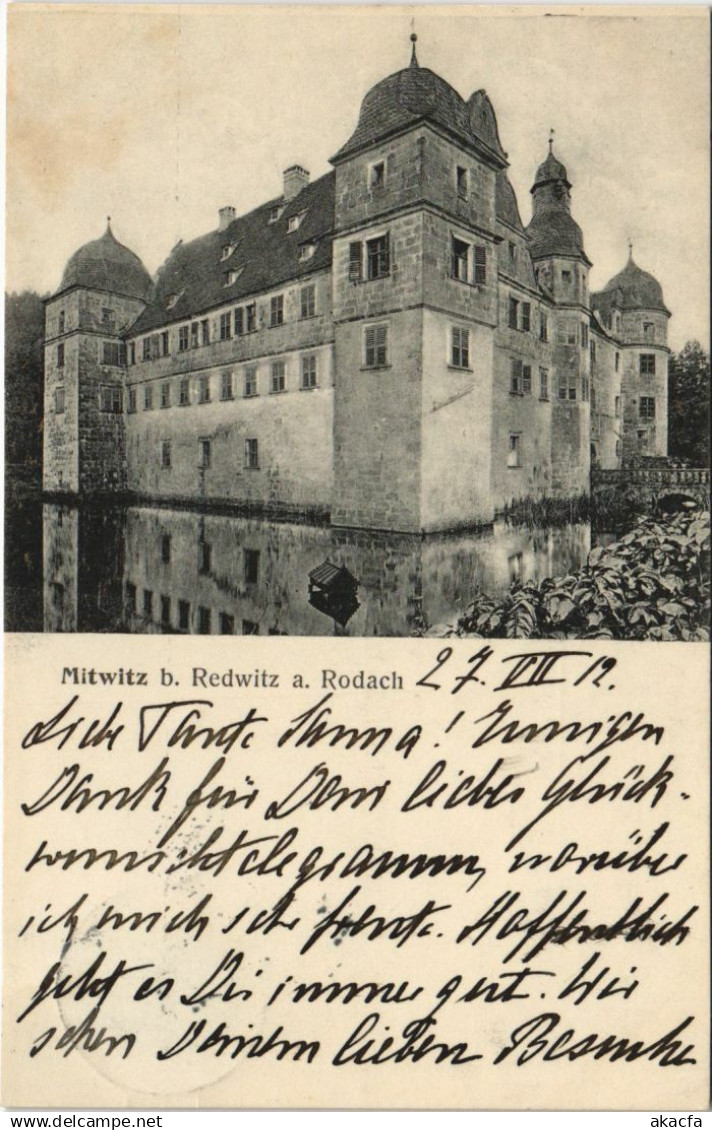 Mitwitz b. Redwitz a. Rodach 27. VII 12.
Liebe Tante Hanna! Innigen
Dank für Dein liebes Glück-
wunschtelegramm, worüber
ich mich sehr freute. Hoffentlich
geht es Dir immer gut. Wir
sehen Deinem lieben Besuche
www.delcampe.net
akacfa